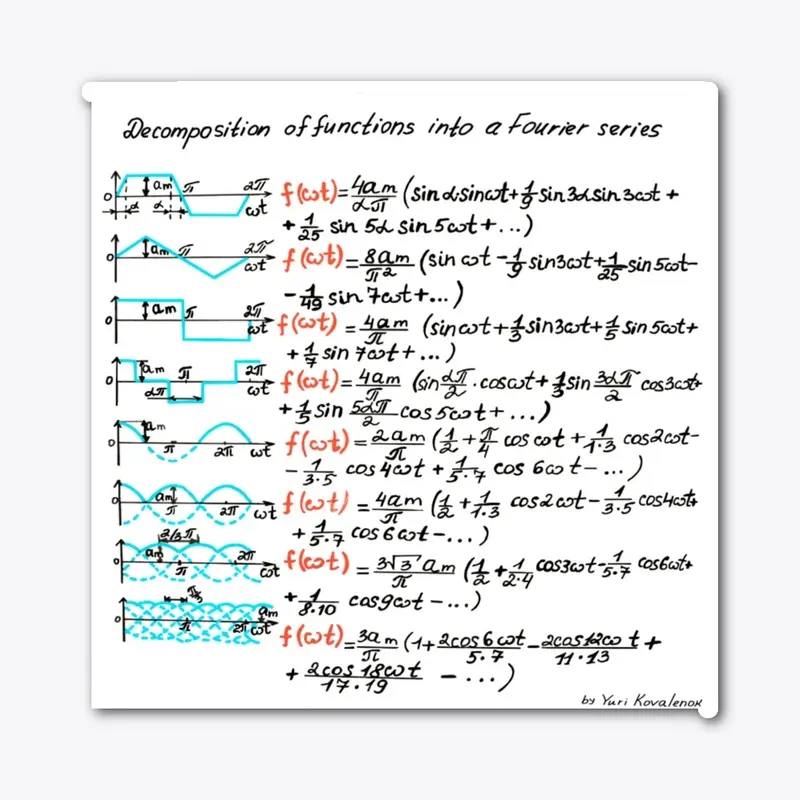 Decomposition of functions into a Fourier series
0 am π 2π ωt α α
f(ωt)=4am/απ (sinαsinωt+1/9sin3αsin3ωt+
+1/25 sin 5α sin 5ωt+...)
0 am π 2π ωt
f(ωt)=8am/π² (sin ωt-1/9sin3ωt+1/25sin5ωt-
-1/49 sin 7ωt+...)
0 am π 2π ωt
f(ωt)=4am/π (sinωt+1/3sin3ωt+1/5sin5ωt+
+1/7 sin 7ωt+...)
0 am π 2π απ
f(ωt)=4am/π (sinαπ/2·cosωt+1/3sin 3απ/2 cos3ωt+
+1/5sin 5απ/2 cos5ωt+...)
0 am π 2π ωt
f(ωt)=2am/π (1/2+π/4 cos ωt+1/1·3 cos2ωt-
-1/3·5 cos4ωt+1/5·7 cos 6ωt-...)
0 am π 2π ωt
f(ωt)=4am/π (1/2+1/1·3 cos2ωt-1/3·5cos4ωt+
+1/5·7 cos6ωt-...)
2/3π
0 am π 2π ωt
f(ωt)=3√3 am/π (1/2+1/2·4 cos3ωt-1/5·7 cos6ωt+
+1/8·10 cos9ωt-...)
0 π 2π am ωt
f(ωt)=3am/π (1+2cos6ωt/5·7-2cos12ωt/11·13+
+2cos18ωt/17·19 -...)
by Yuri Kovalenok